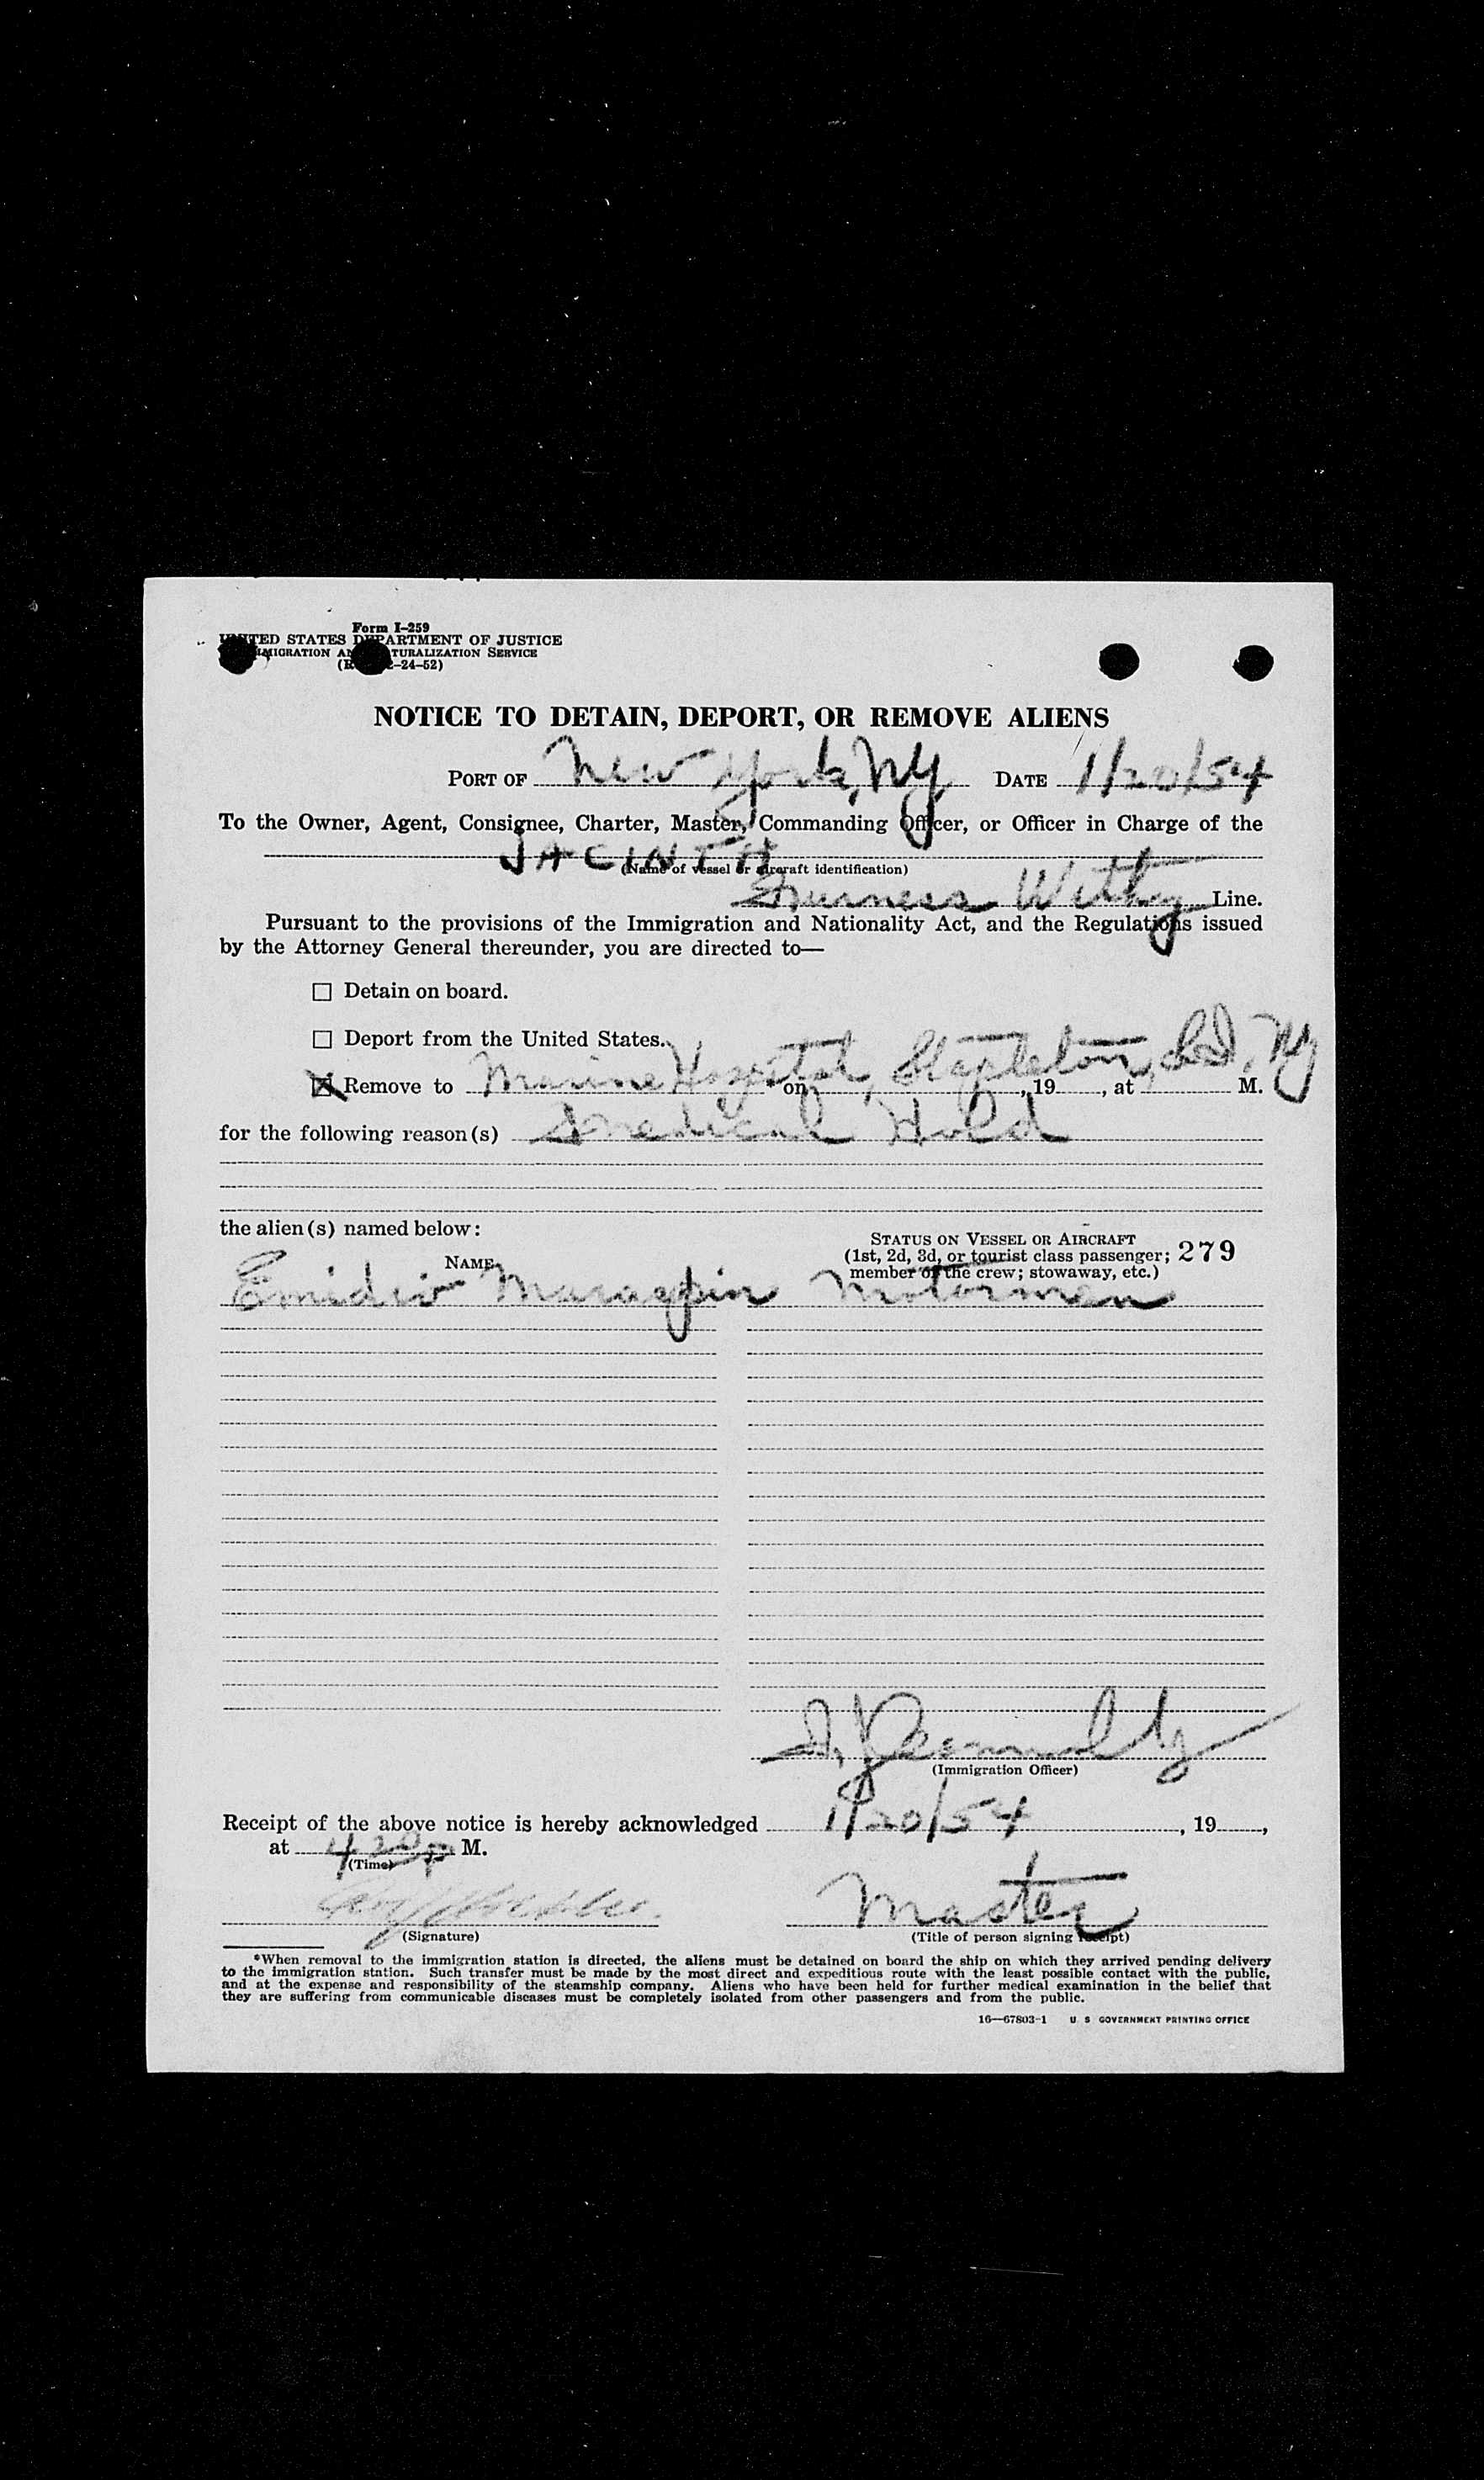 Form I-259
UNITED STATES DEPARTMENT OF JUSTICE
IMMIGRATION AND NATURALIZATION SERVICE
-24-52)
NOTICE TO DETAIN, DEPORT, OR REMOVE ALIENS
PORT OF New York, NY DATE 1/20/54
To the Owner, Agent, Consignee, Charter, Master, Commanding Officer, or Officer in Charge of the
JACINTH
(Name of vessel or aircraft identification)
Furness Withy Line.
Pursuant to the provisions of the Immigration and Nationality Act, and the Regulations issued
by the Attorney General thereunder, you are directed to—
☐ Detain on board.
☐ Deport from the United States.
☒ Remove to Marine Hospital, Stapleton, S.I. NY * on , 19 , at M.
for the following reason(s) Medical Hold
the alien(s) named below:
NAME
STATUS ON VESSEL OR AIRCRAFT
(1st, 2d, 3d, or tourist class passenger;
member of the crew; stowaway, etc.)
279
Emidio Motorman
(Immigration Officer)
Receipt of the above notice is hereby acknowledged 1/20/54 , 19 ,
at 4 20 p M.
(Time)
Master
(Signature) (Title of person signing receipt)
*When removal to the immigration station is directed, the aliens must be detained on board the ship on which they arrived pending delivery
to the immigration station. Such transfer must be made by the most direct and expeditious route with the least possible contact with the public,
and at the expense and responsibility of the steamship company. Aliens who have been held for further medical examination in the belief that
they are suffering from communicable diseases must be completely isolated from other passengers and from the public.
16—67803-1 U. S. GOVERNMENT PRINTING OFFICE